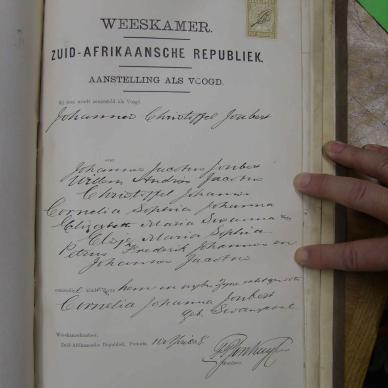 WEESKAMER.
ZUID-AFRIKAANSCHE REPUBLIEK.
AANSTELLING ALS VOOGD.
Bij deze wordt aangesteld als Voogd
Johannes Christoffel Joubert
over
Johannes Jacobus Joubert
Willem Andries Jacobus
Christoffel Johannes
Cornelia Sophia Johanna
Elizabeth Maria Susanna
Eliza Maria Sophia
Petrus Frederik Johannes en
Johannes Jacobus
hem en wijlen zyne echtgenote
Cornelia Johanna Joubert
geb. Swanepoel
Weeskamer,
Zuid-Afrikaansche Republiek, Pretoria,